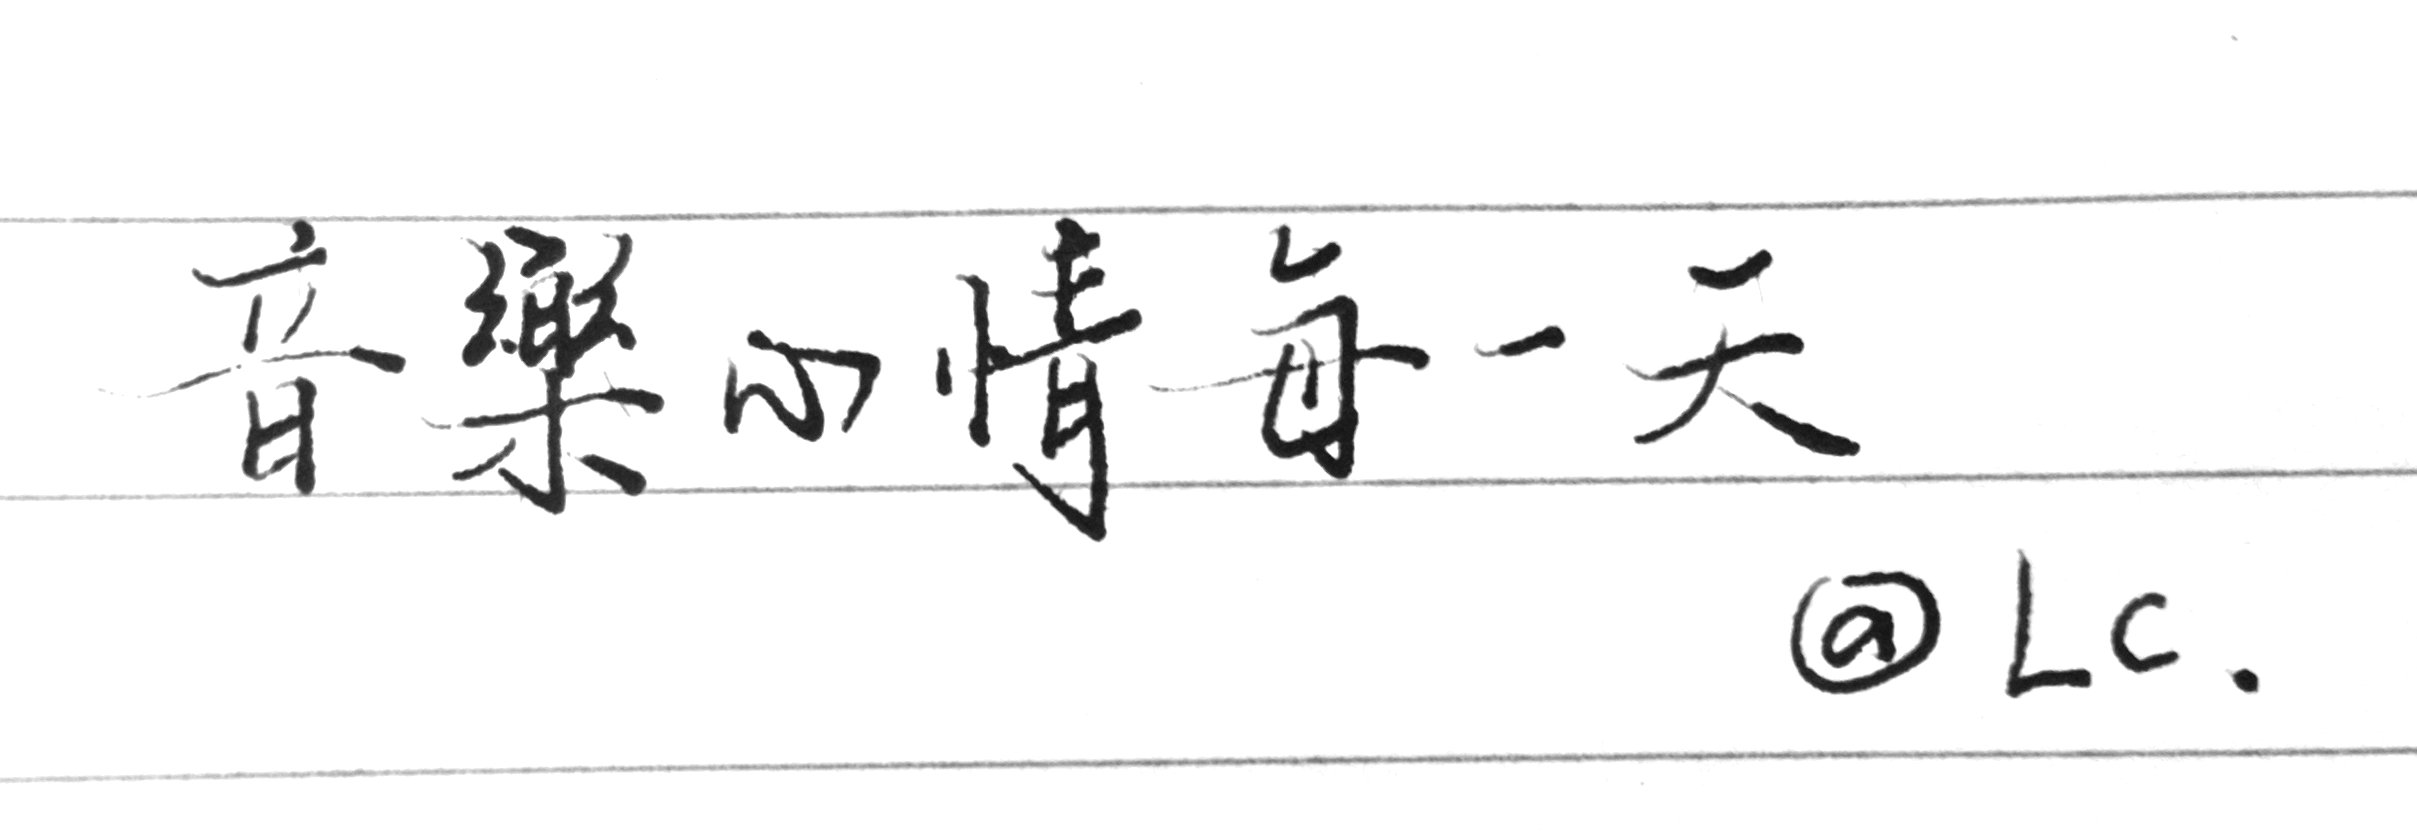 音樂心情每一天
@ Lc.